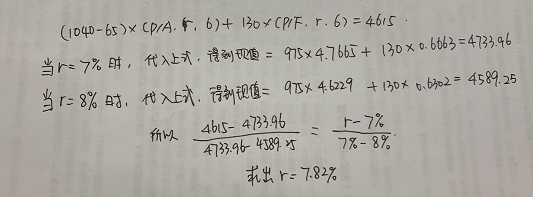 (1040-65)×(P/A, r, 6)+130×(P/F, r, 6)=4615.
当r=7%时, 代入上式, 得到现值=975×4.7665+130×0.6663=4733.96
当r=8%时, 代入上式, 得到现值=975×4.6229+130×0.6302=4589.25
所以 (4615-4733.96)/(4733.96-4589.25)=(r-7%)/(7%-8%).
求出r=7.82%